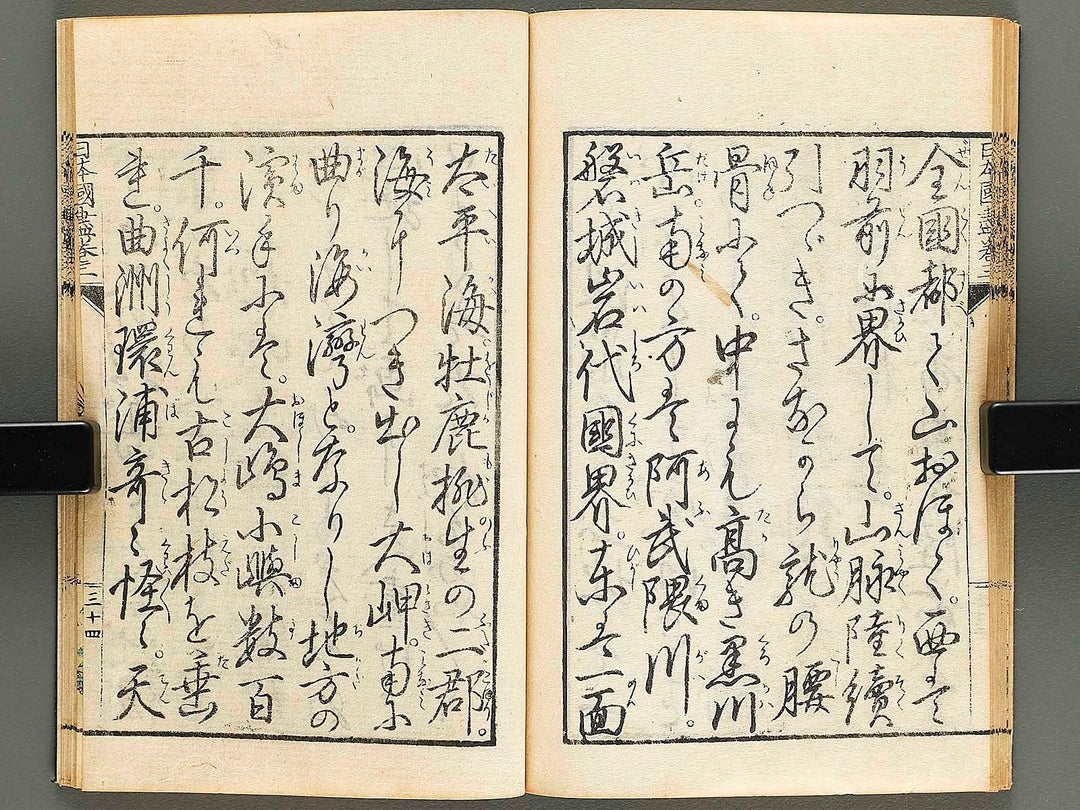 日本國盡卷三
全國都て山おほく。西は
羽前に界して。山脉陸續
引つゞき。さながら龍の腰
骨にて。中にも高き黒川
岳南の方は阿武隈川。
磐城岩代國界。東は一面
太平海。牡鹿桃生の二郡。
海中つき出し大岬。南に
曲り海灣となりし地方の
濱手には。大嶋小嶼數百
千。何れも古松枝を垂
れ。曲洲環浦奇々怪々。天
日本國盡卷三
三十四